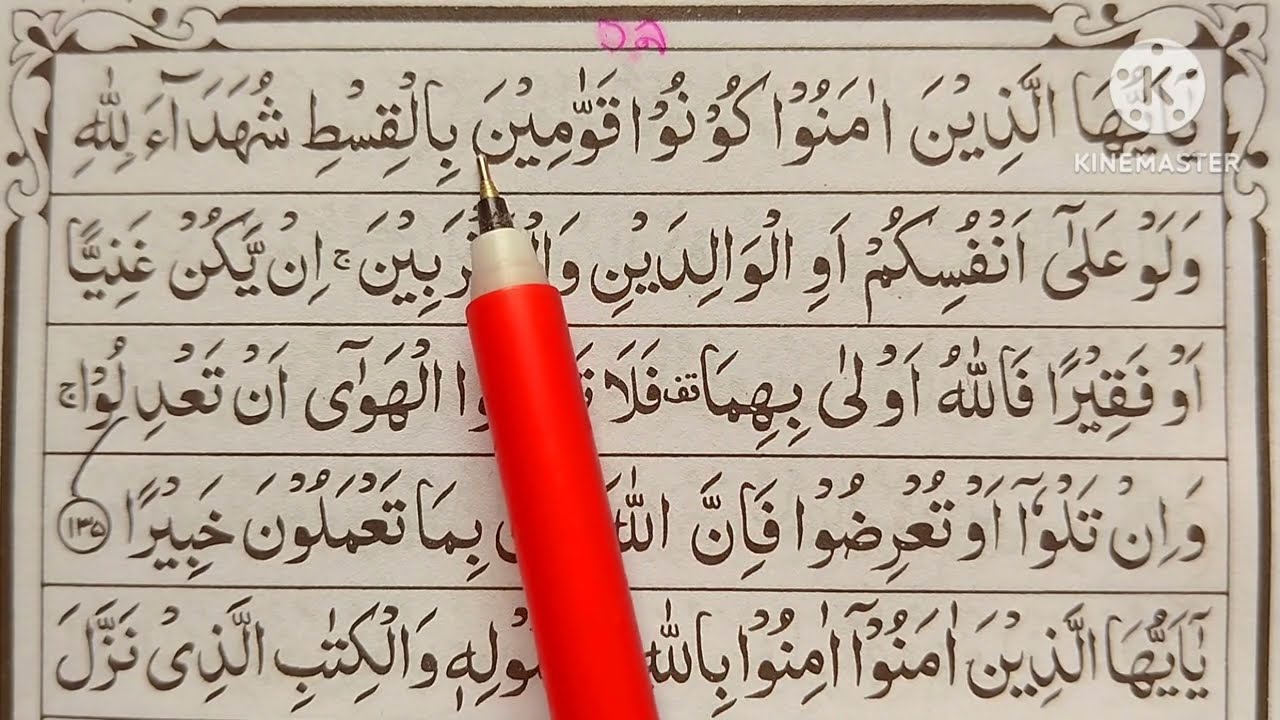 ১৯
يٰۤاَيُّهَا الَّذِيْنَ اٰمَنُوْا كُوْنُوْا قَوّٰمِيْنَ بِالْقِسْطِ شُهَدَآءَ لِلّٰهِ
KINEMASTER
وَلَوْ عَلٰٓى اَنْفُسِكُمْ اَوِ الْوَالِدَيْنِ ج اِنْ يَّكُنْ غَنِيًّا
اَوْ فَقِيْرًا فَاللّٰهُ اَوْلٰى بِهِمَا تف فَلَا الْهَوٰٓى اَنْ تَعْدِلُوْا ج
وَاِنْ تَلْوٗٓا اَوْ تُعْرِضُوْا فَاِنَّ اللّٰهَ بِمَا تَعْمَلُوْنَ خَبِيْرًا ١٣٥
يٰٓاَيُّهَا الَّذِيْنَ اٰمَنُوْٓا اٰمِنُوْا بِاللّٰهِ وَالْكِتٰبِ الَّذِىْ نَزَّلَ